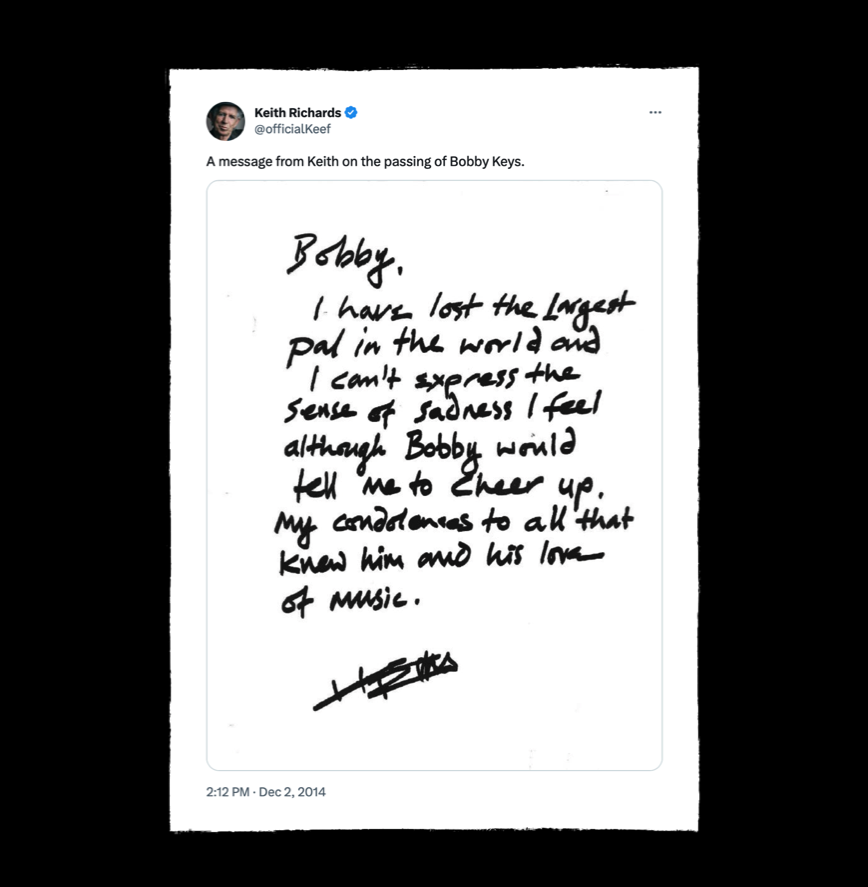 Keith Richards
@officialKeef
A message from Keith on the passing of Bobby Keys.
Bobby,
I have lost the largest
pal in the world and
I can't express the
sense of sadness I feel
although Bobby would
tell me to cheer up.
My condolences to all that
knew him and his love
of music.
2:12 PM · Dec 2, 2014